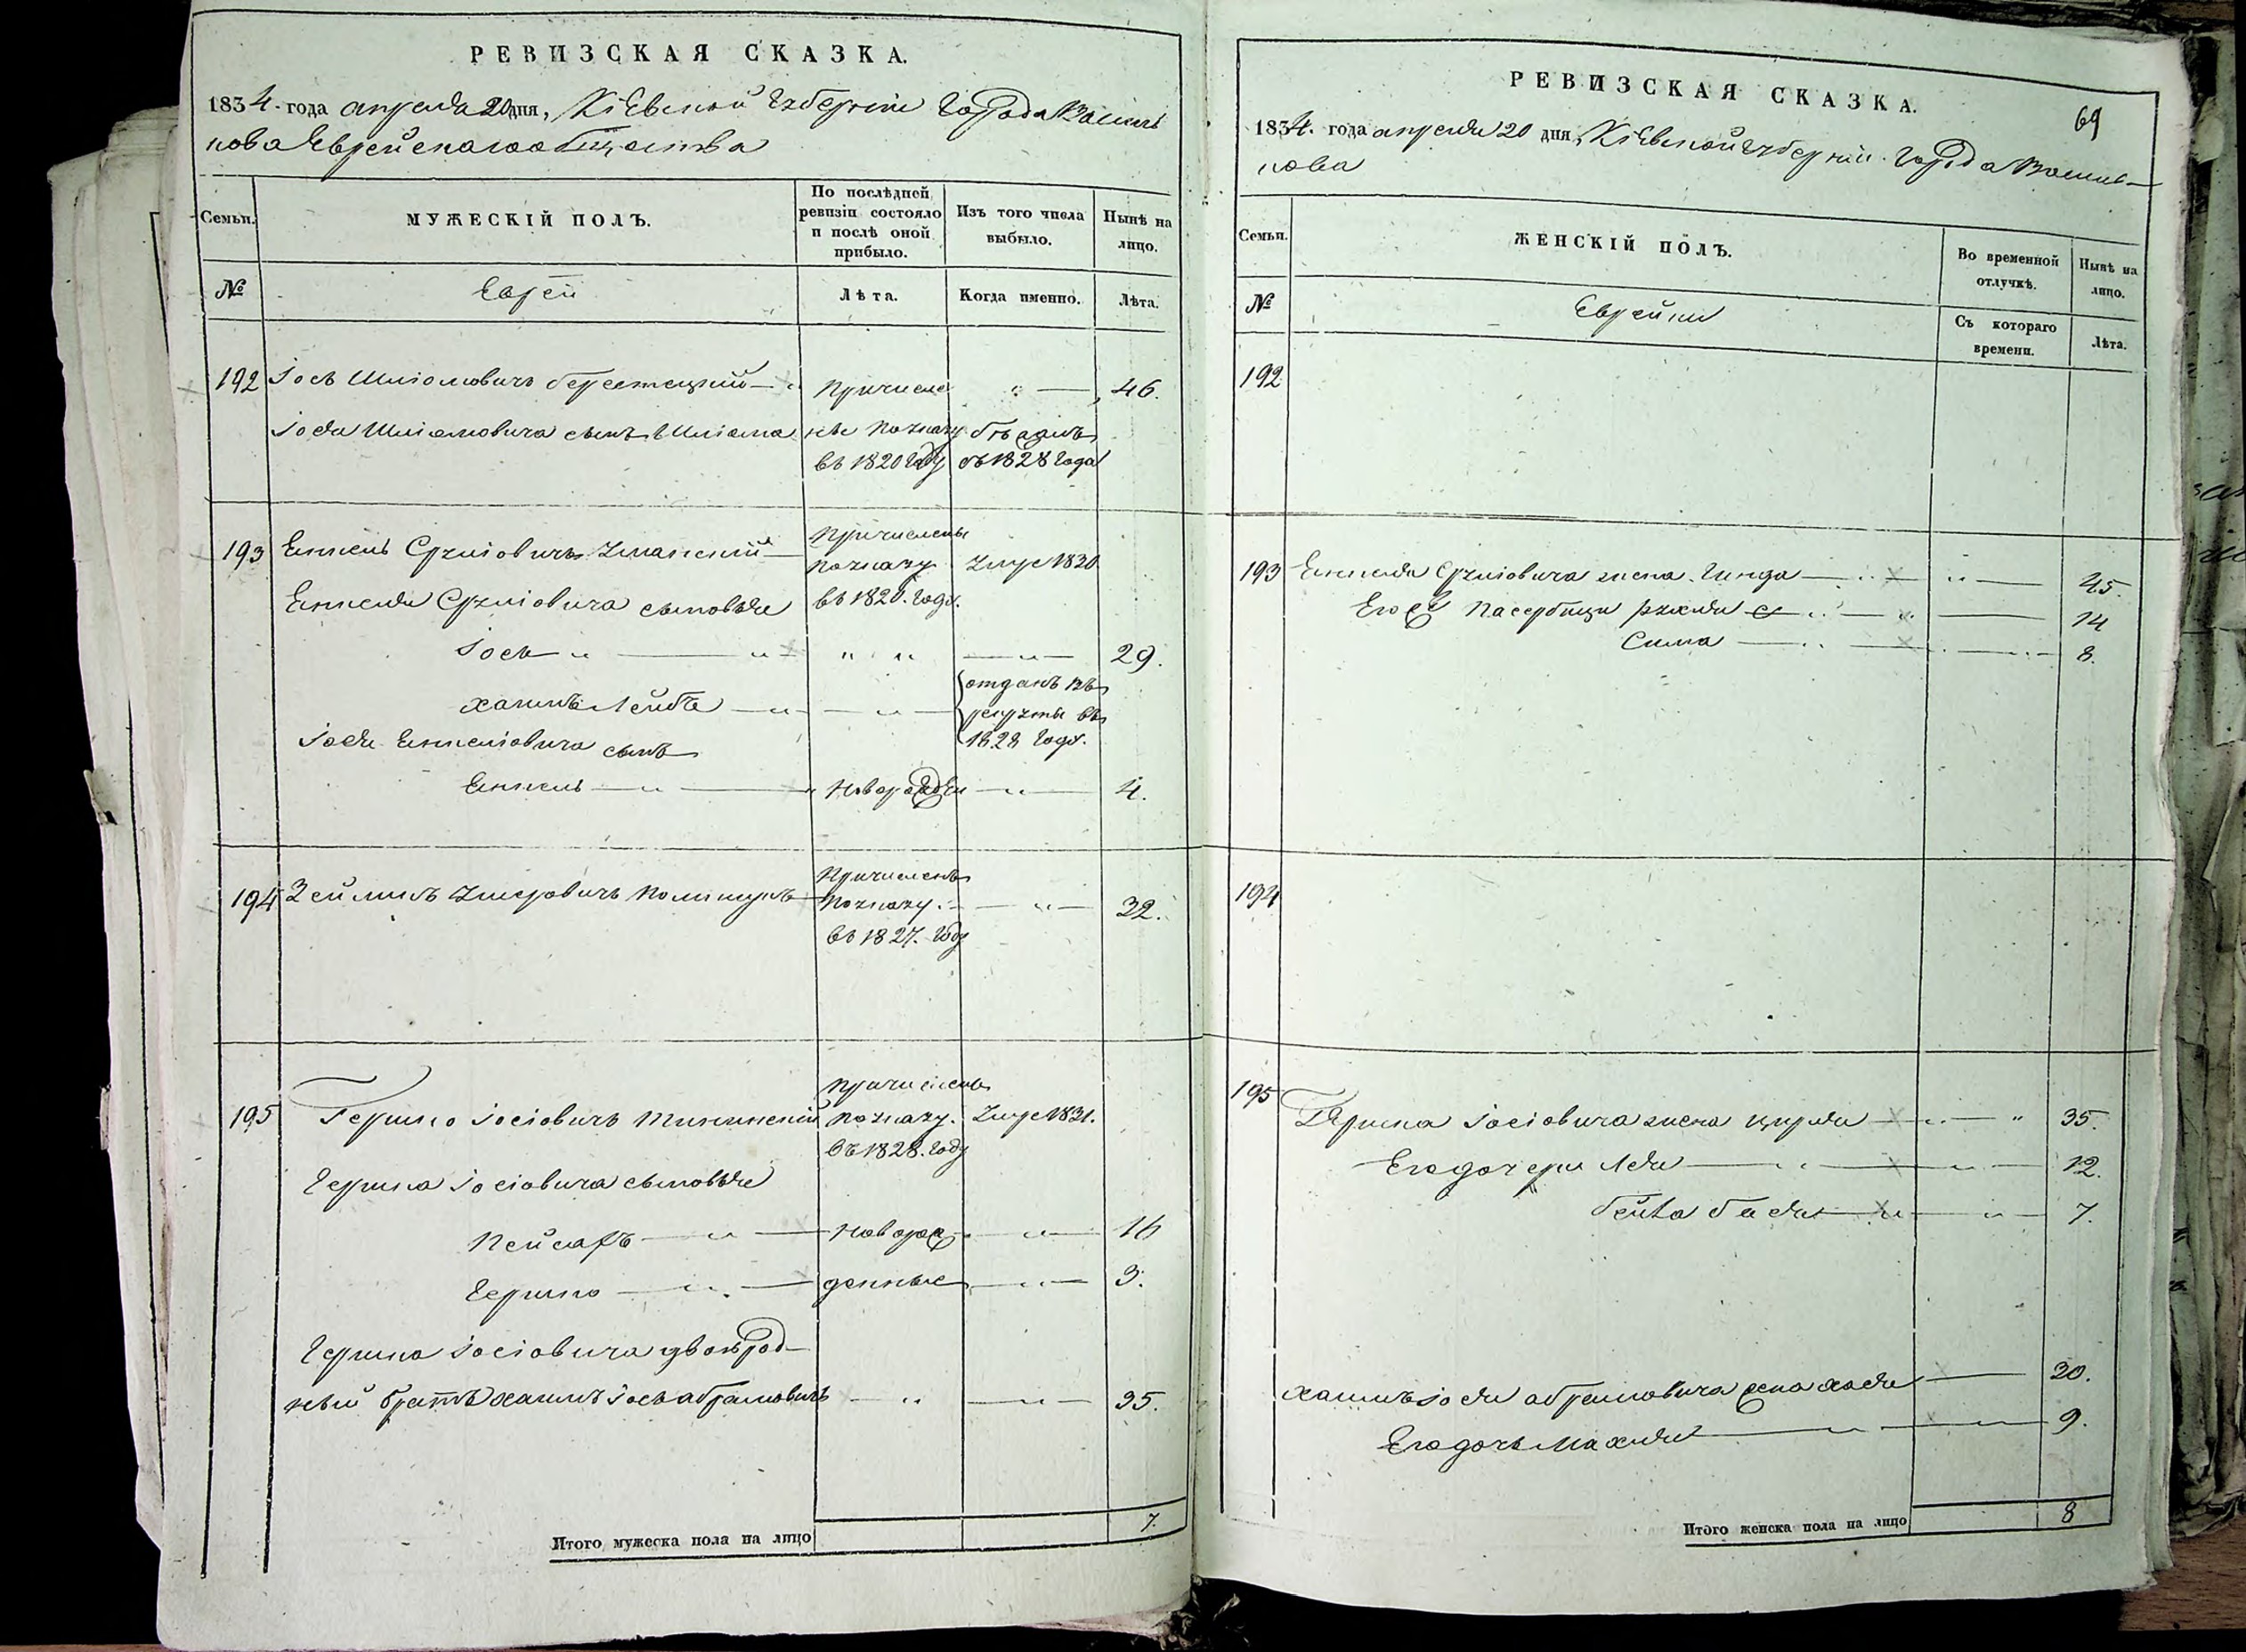 РЕВИЗСКАЯ СКАЗКА.
1834. года апреля 20 дня, Кіевской Губерніи Города Василь
кова Еврейскаго общества
Семьи.
МУЖЕСКІЙ ПОЛЪ.
По послѣдней ревизіи состояло и послѣ оной прибыло.
Изъ того числа выбыло.
Нынѣ на лицо.
№
Евреи
Лѣта.
Когда именно.
Лѣта.
192 Іось Шліомовичъ Берестецкий причисле 46.
Іося Шліомовича сынъ Шліома ны по указу въ бегахъ
въ 1820 году съ 1828 года
193 Енкель Срулiовичъ Уманский причислены по указу умре 1830
Енкеля Срулiовича сыновья въ 1820. году.
Іось 29.
Хаимъ Лейба отданъ въ рекруты въ 1828 году.
Іося Енкелiовича сынъ
Енкель новорожден 4.
194 Зейликъ Умеровичъ причисленъ по указу въ 1827. году 32.
195 Гершко Іосіовичъ причисленъ по указу. умре 1831.
въ 1828. году
Гершка Іосіовича сыновья
Пейсахъ новорож 16
Гершко денные 3.
Гершка Іосіовича двоюрод
ный братъ Хаимъ Іось Абрамовичъ 35.
Итого мужеска пола на лицо 7.
РЕВИЗСКАЯ СКАЗКА.
69
1834. года апреля 20 дня, Кіевской Губерніи. Города Василь
кова
Семьи.
ЖЕНСКІЙ ПОЛЪ.
Во временной отлучкѣ.
Нынѣ на лицо.
№
Еврейки
Съ котораго времени.
Лѣта.
192
193 Енкеля Срулiовича жена Гинда 45.
Его пасербицы Рухля 14
Сима 8.
194
195 Гершка Іосіовича жена Цирля 35.
Его дочери Лея 12.
Бейла Бася 7.
Хаимъ Іося Абрамовича жена Хася 30.
Его дочь Махля 9.
Итого женска пола на лицо 8